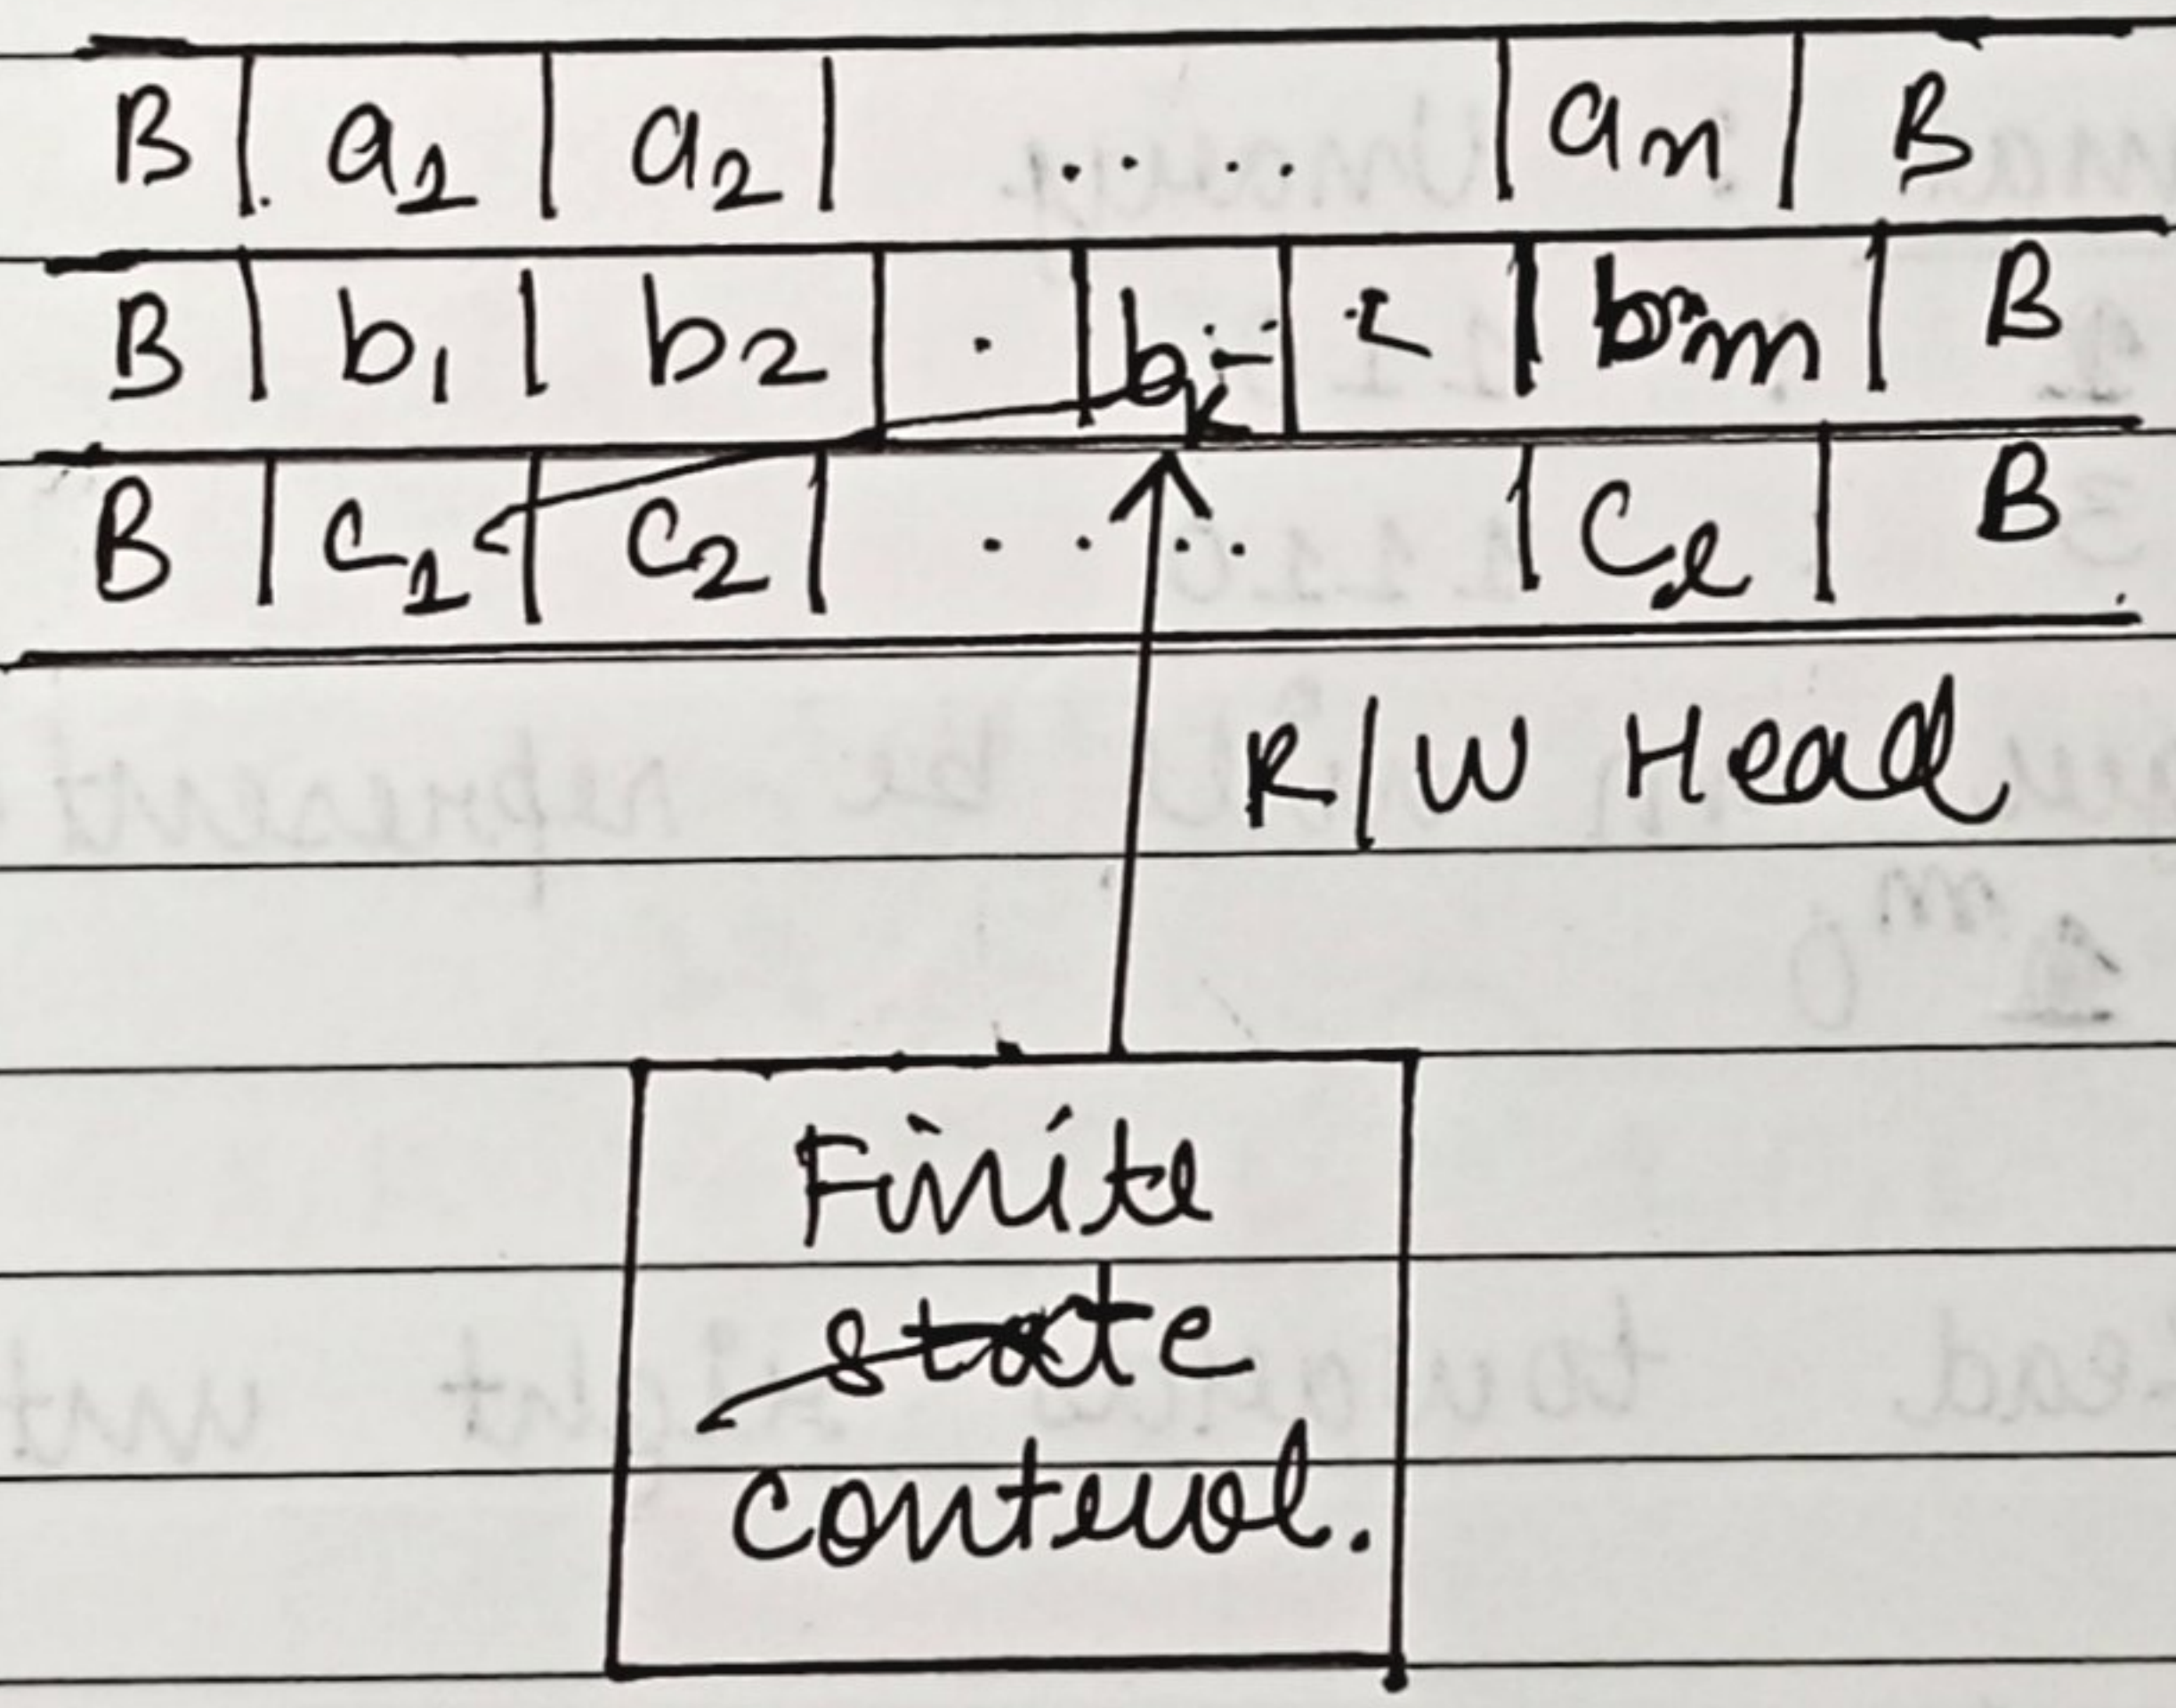 B | a1 | a2 | .... | an | B
B | b1 | b2 | . | bi | | bm | B
B | c1 | c2 | .... | cl | B
R/W Head
Finite
state
control.